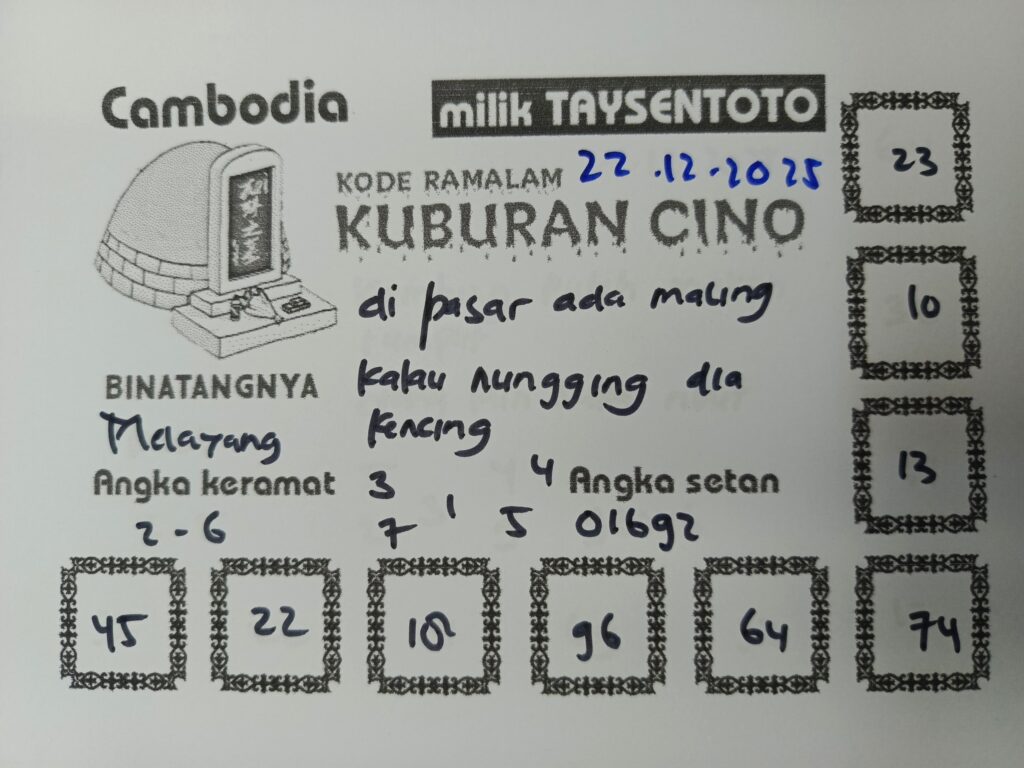 Cambodia
milik TAYSENTOTO
KODE RAMALAM 22.12.2025
KUBURAN CINO
di pasar ada maling
kalau nungging dia
kencing
BINATANGNYA
Melayang
Angka keramat
2 - 6
3 4
7 1 5
Angka setan
01692
23
10
13
45 22 18 96 64 74